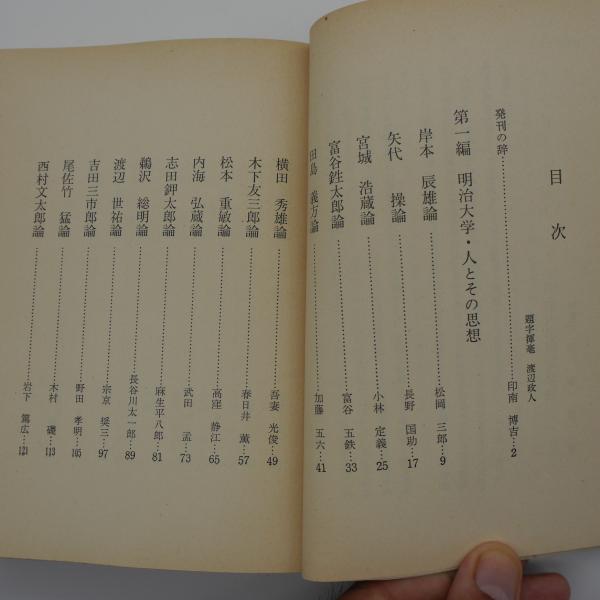 目次
題字揮毫 渡辺政人
発刊の辞……印南 博吉…2
第一編 明治大学・人とその思想
岸本 辰雄論……松岡 三郎…9
矢代 操論……長野 国助…17
宮城 浩蔵論……小林 定義…25
富谷鉎太郎論……富谷 五鉄…33
田島 義方論……加藤 五六…41
横田 秀雄論……吾妻 光俊…49
木下友三郎論……春日井 薫…57
松本 重敏論……高窪 静江…65
内海 弘蔵論……武田 孟…73
志田鉀太郎論……麻生平八郎…81
鵜沢 総明論……長谷川太一郎…89
渡辺 世祐論……宗京 奨三…97
吉田三市郎論……野田 孝明…105
尾佐竹 猛論……木村 礎…113
西村文太郎論……岩下 篤広…121